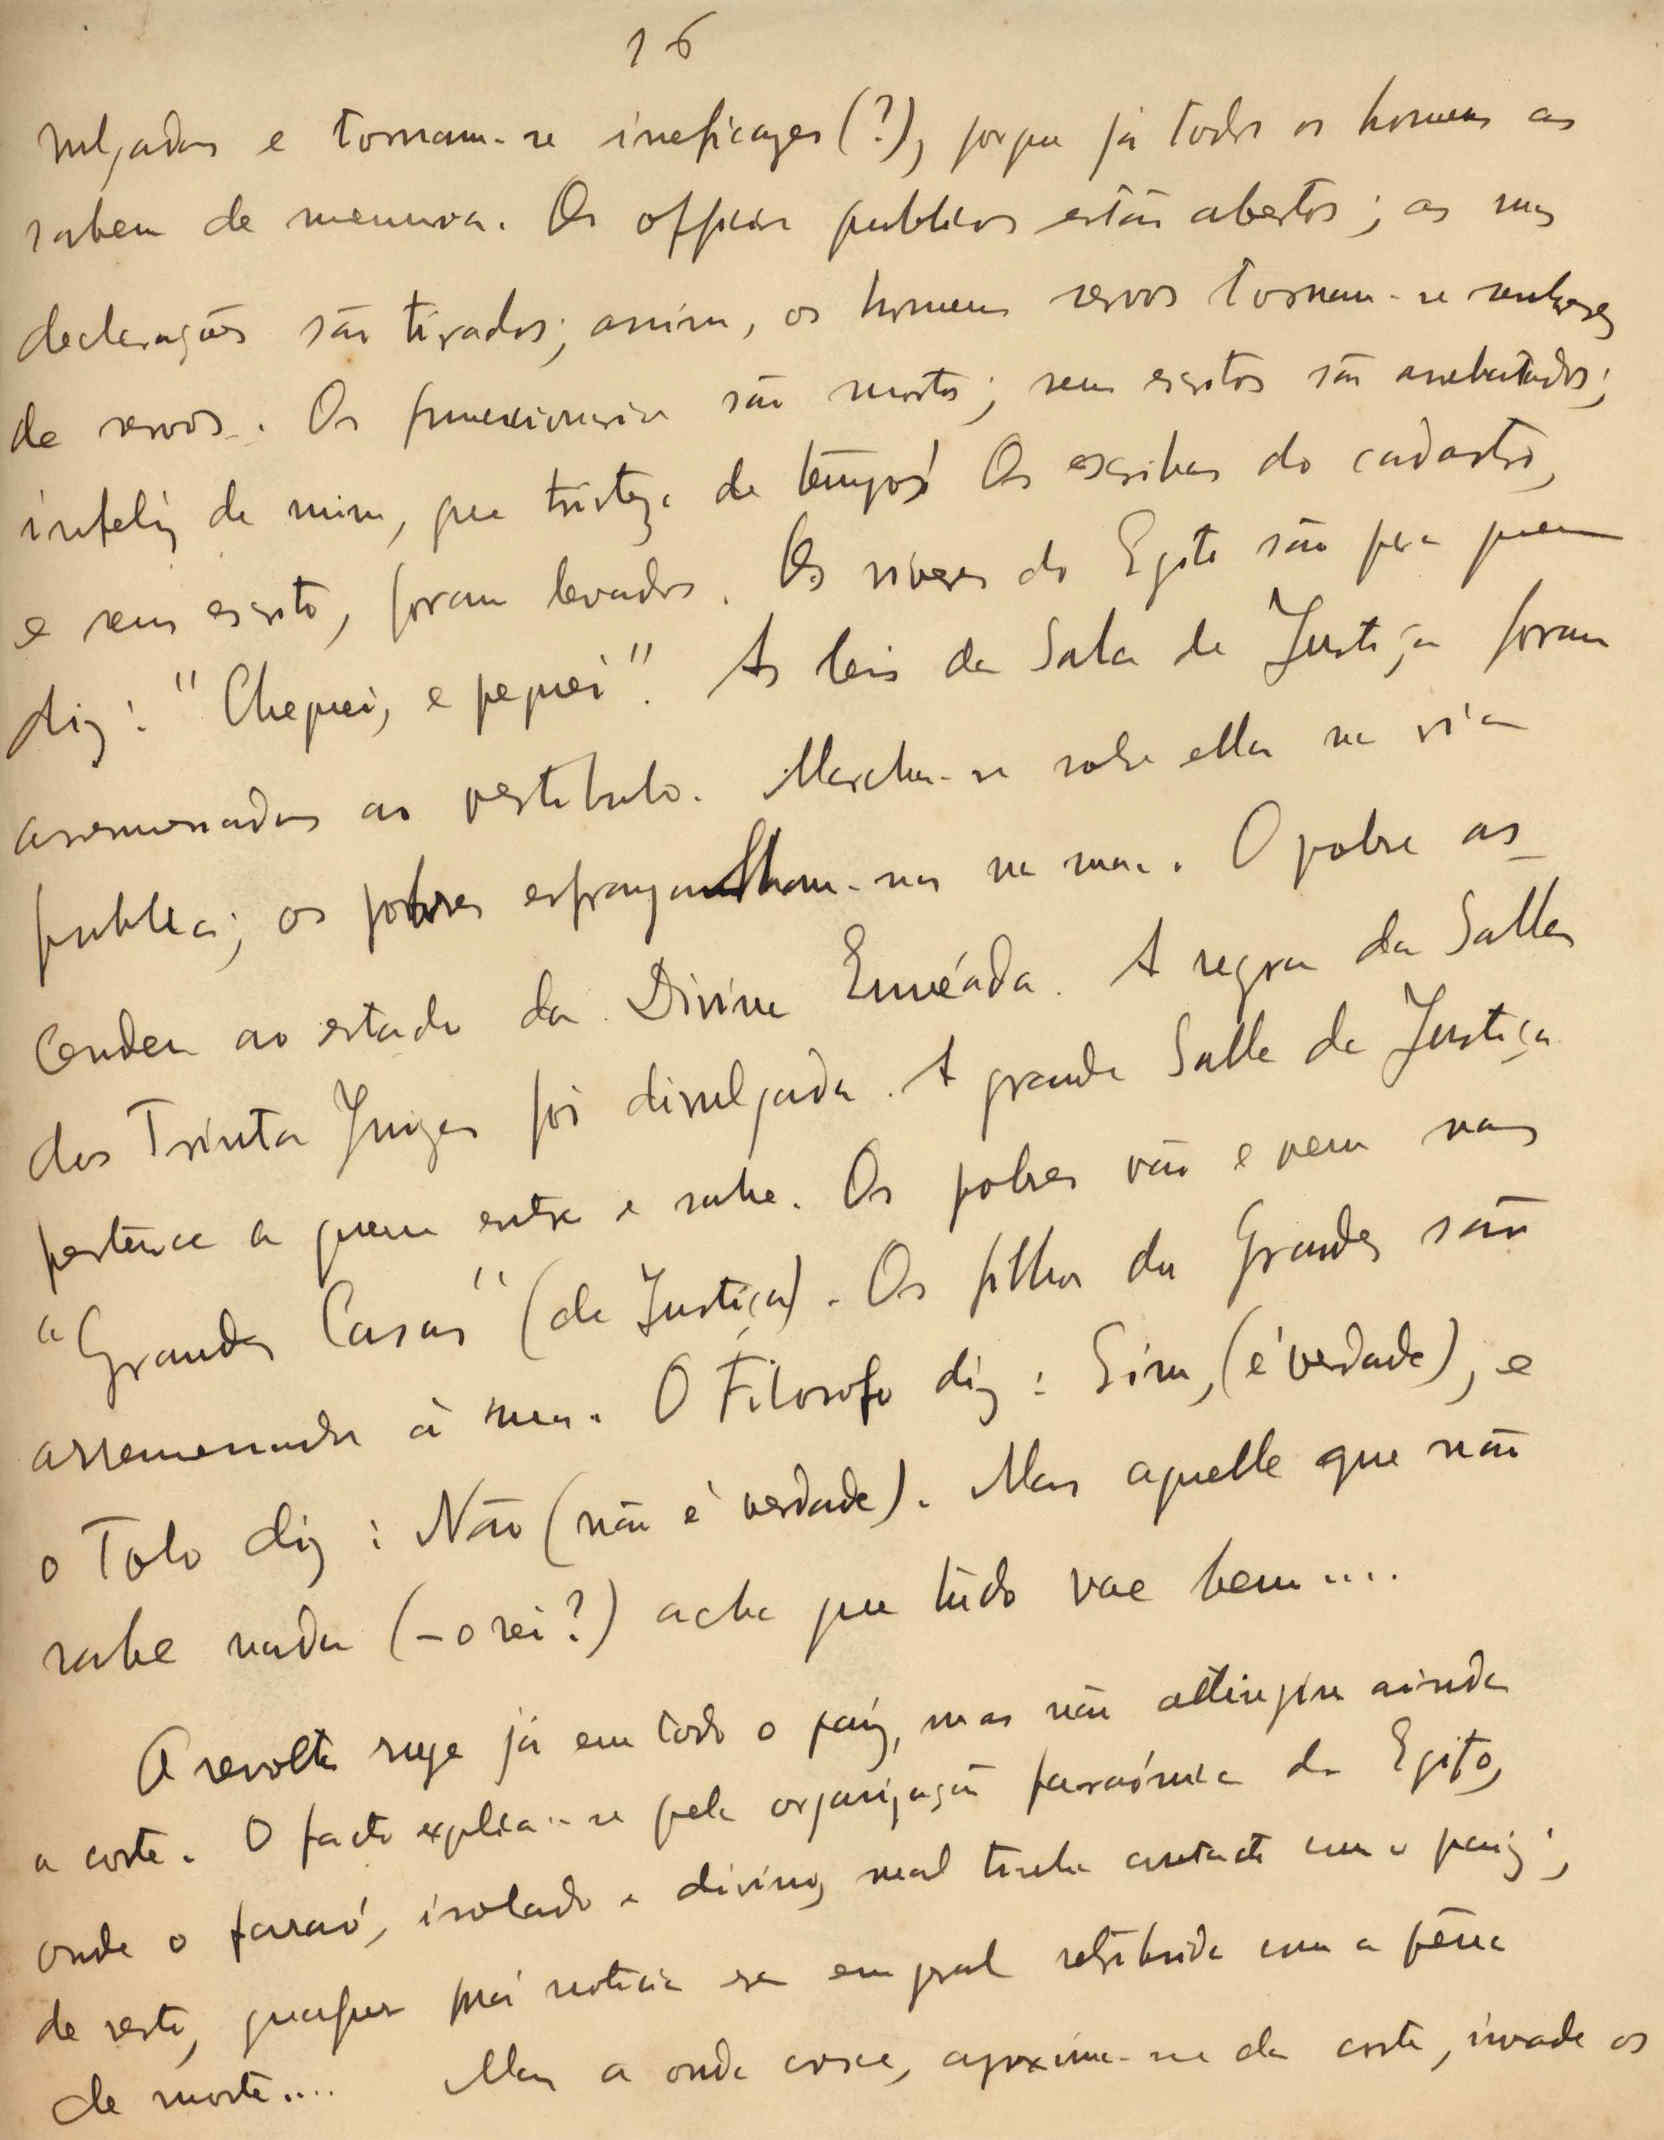 16
vulgadas e tornam-se ineficazes (?), porque já todos os homens as
sabem de memoria. Os officios publicos estão abertos; as suas
declarações são tiradas; assim, os homens servos tornam-se senhores
de servos. Os funccionarios são mortos; seus escritos são arrebatados;
infeliz de mim, que tristeza de tempos! Os escribas do cadastro,
e seus escritos, foram levados. Os viveres do Egito são para quem
diz: "Cheguei, e peguei". As leis da Sala de Justiça foram
arremessadas ao vestibulo. Marcha-se sobre ellas na via
publica; os pobres esfrangalham-nas na rua. O pobre as-
cendeu ao estado da Divina Ennéada. A regra da Salla
dos Trinta Juizes foi divulgada. A grande Salla de Justiça
pertence a quem entra e sahe. Os pobres vão e vem nas
"Grandes Casas" (de Justiça). Os filhos dos Grandes são
arremessados á rua. O Filosofo diz: Sim, (é verdade), e
o Tolo diz: Não (não é verdade). Mas aquelle que não
sabe nada (- o rei?) acha que tudo vae bem....
A revolta ruge já em todo o paiz, mas não attingiu ainda
a corte. O facto explica-se pela organização faraónica do Egito,
onde o faraó, isolado e divino, mal tinha contacto com o paiz;
de resto, qualquer má noticia era em geral retribuida com a pena
de morte.... Mas a onda cresce, aproxima-se da corte, invade os